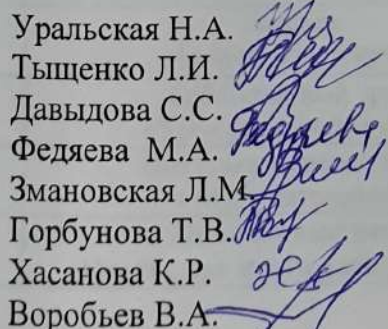 Уральская Н.А.
Тыщенко Л.И.
Давыдова С.С.
Федяева М.А.
Змановская Л.М
Горбунова Т.В.
Хасанова К.Р.
Воробьев В.А.